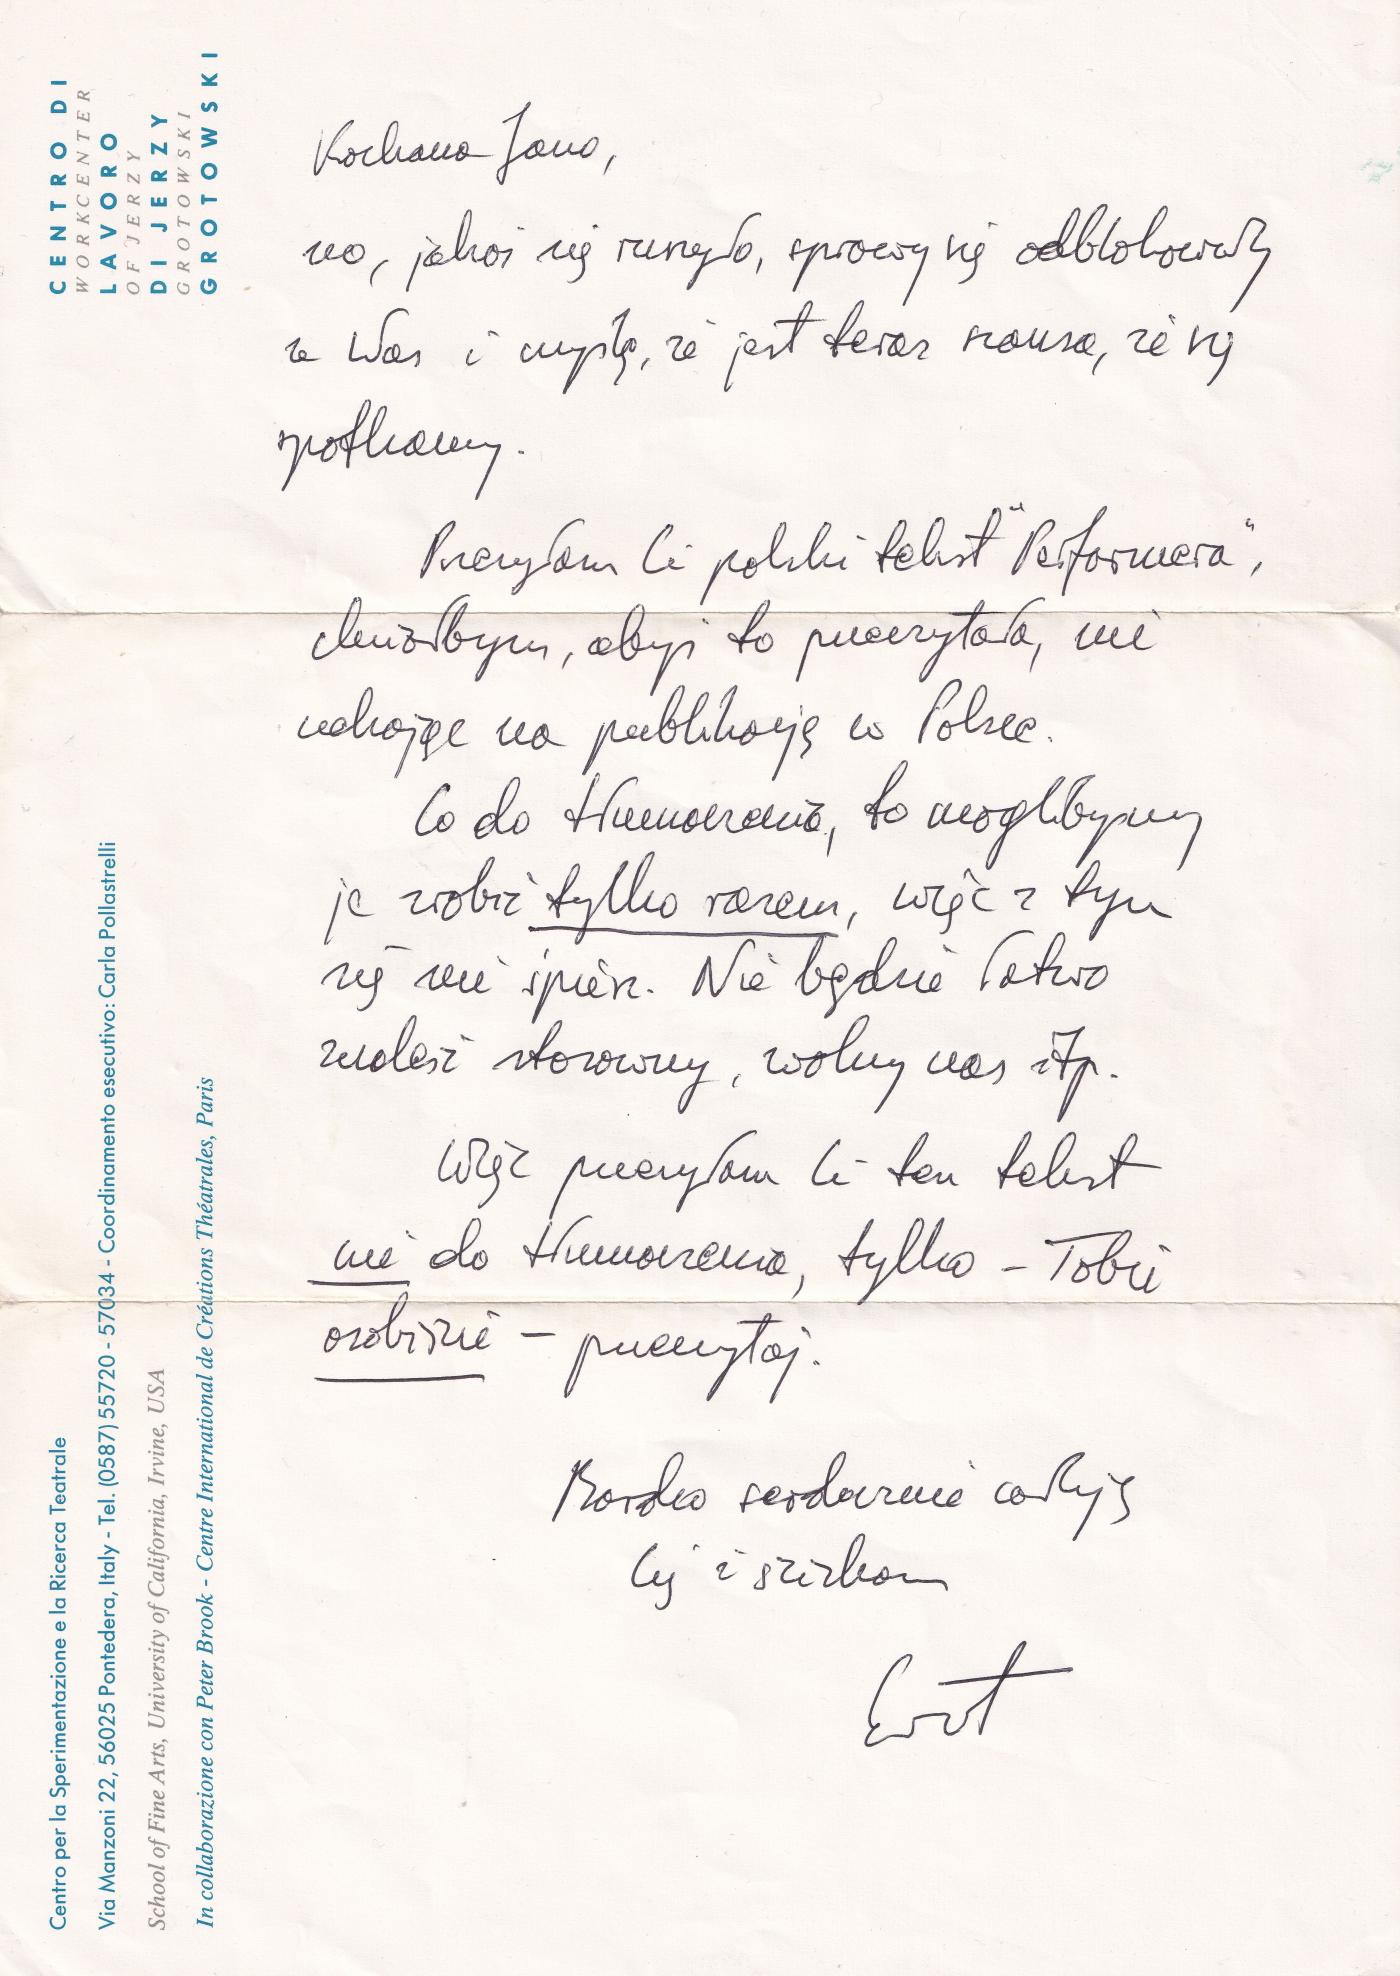 CENTRO DI
WORKCENTER
LAVORO
OF JERZY
DI JERZY
GROTOWSKI
GROTOWSKI
Kochana Jano,
no, jakoś się ruszyło, sprawy się odblokowały
u Was i myślę, że jest teraz szansa, że się
spotkamy.
Przesyłam Ci polski tekst "Performera",
chciałbym, abyś to przeczytała, nie
czekając na publikację w Polsce.
Co do tłumaczenia, to moglibyśmy
je zrobić tylko razem, więc z tym
się nie śpiesz. Nie będzie łatwo
znaleźć stosowny, wolny czas itp.
Więc przesyłam Ci ten tekst
nie do tłumaczenia, tylko – Tobie
osobiście – przeczytaj.
Bardzo serdecznie całuję
Cię i ściskam
Centro per la Sperimentazione e la Ricerca Teatrale
Via Manzoni 22, 56025 Pontedera, Italy - Tel. (0587) 55720 - 57034 - Coordinamento esecutivo: Carla Pollastrelli
School of Fine Arts, University of California, Irvine, USA
In collaborazione con Peter Brook - Centre International de Créations Théatrales, Paris